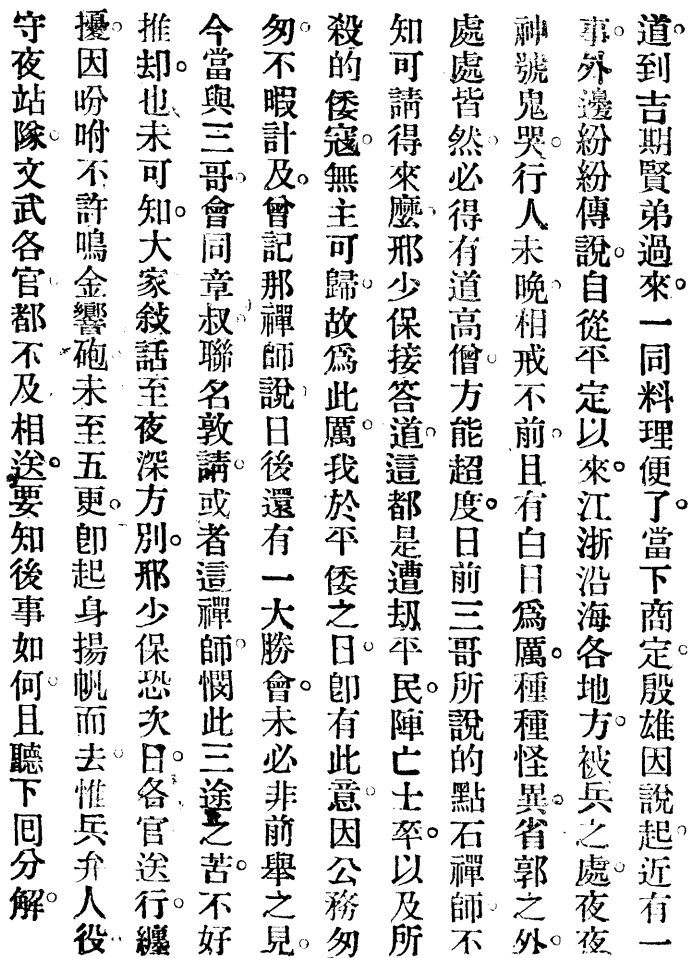 道。到吉期賢弟過來。一同料理便了。當下商定。殷雄因說起近有一
事。外邊紛紛傳說。自從平定以來。江浙沿海各地方。被兵之處。夜夜
神號鬼哭。行人未晩。相戒不前。且有白日爲厲。種種怪異。省郭之外。
處處皆然。必得有道高僧。方能超度。日前三哥所說的點石禪師。不
知可請得來麼。邢少保接答道。這都是遭刼平民。陣亡士卒。以及所
殺的倭寇。無主可歸。故爲此厲。我於平倭之日。卽有此意。因公務匆
匆。不暇計及。曾記那禪師說。日後還有一大勝會。未必非前舉之見。
今當與三哥。會同章叔。聯名敦請。或者這禪師。憫此三途之苦。不好
推却。也未可知。大家敍話。至夜深方別。邢少保恐次日。各官送行。纏
擾。因吩咐不許鳴金響砲。未至五更。卽起身揚帆而去。惟兵弁人役
守夜站隊。文武各官。都不及相送。要知後事如何。且聽下囘分解。